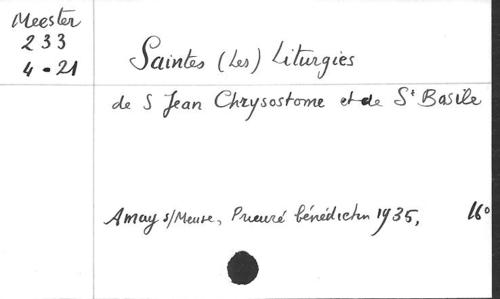 Meester
233
4-21
Saintes (Les) Liturgies
de S Jean Chrysostome et de St Basile
Amay s/Meuse, Prieuré bénédictin 1935, 16°